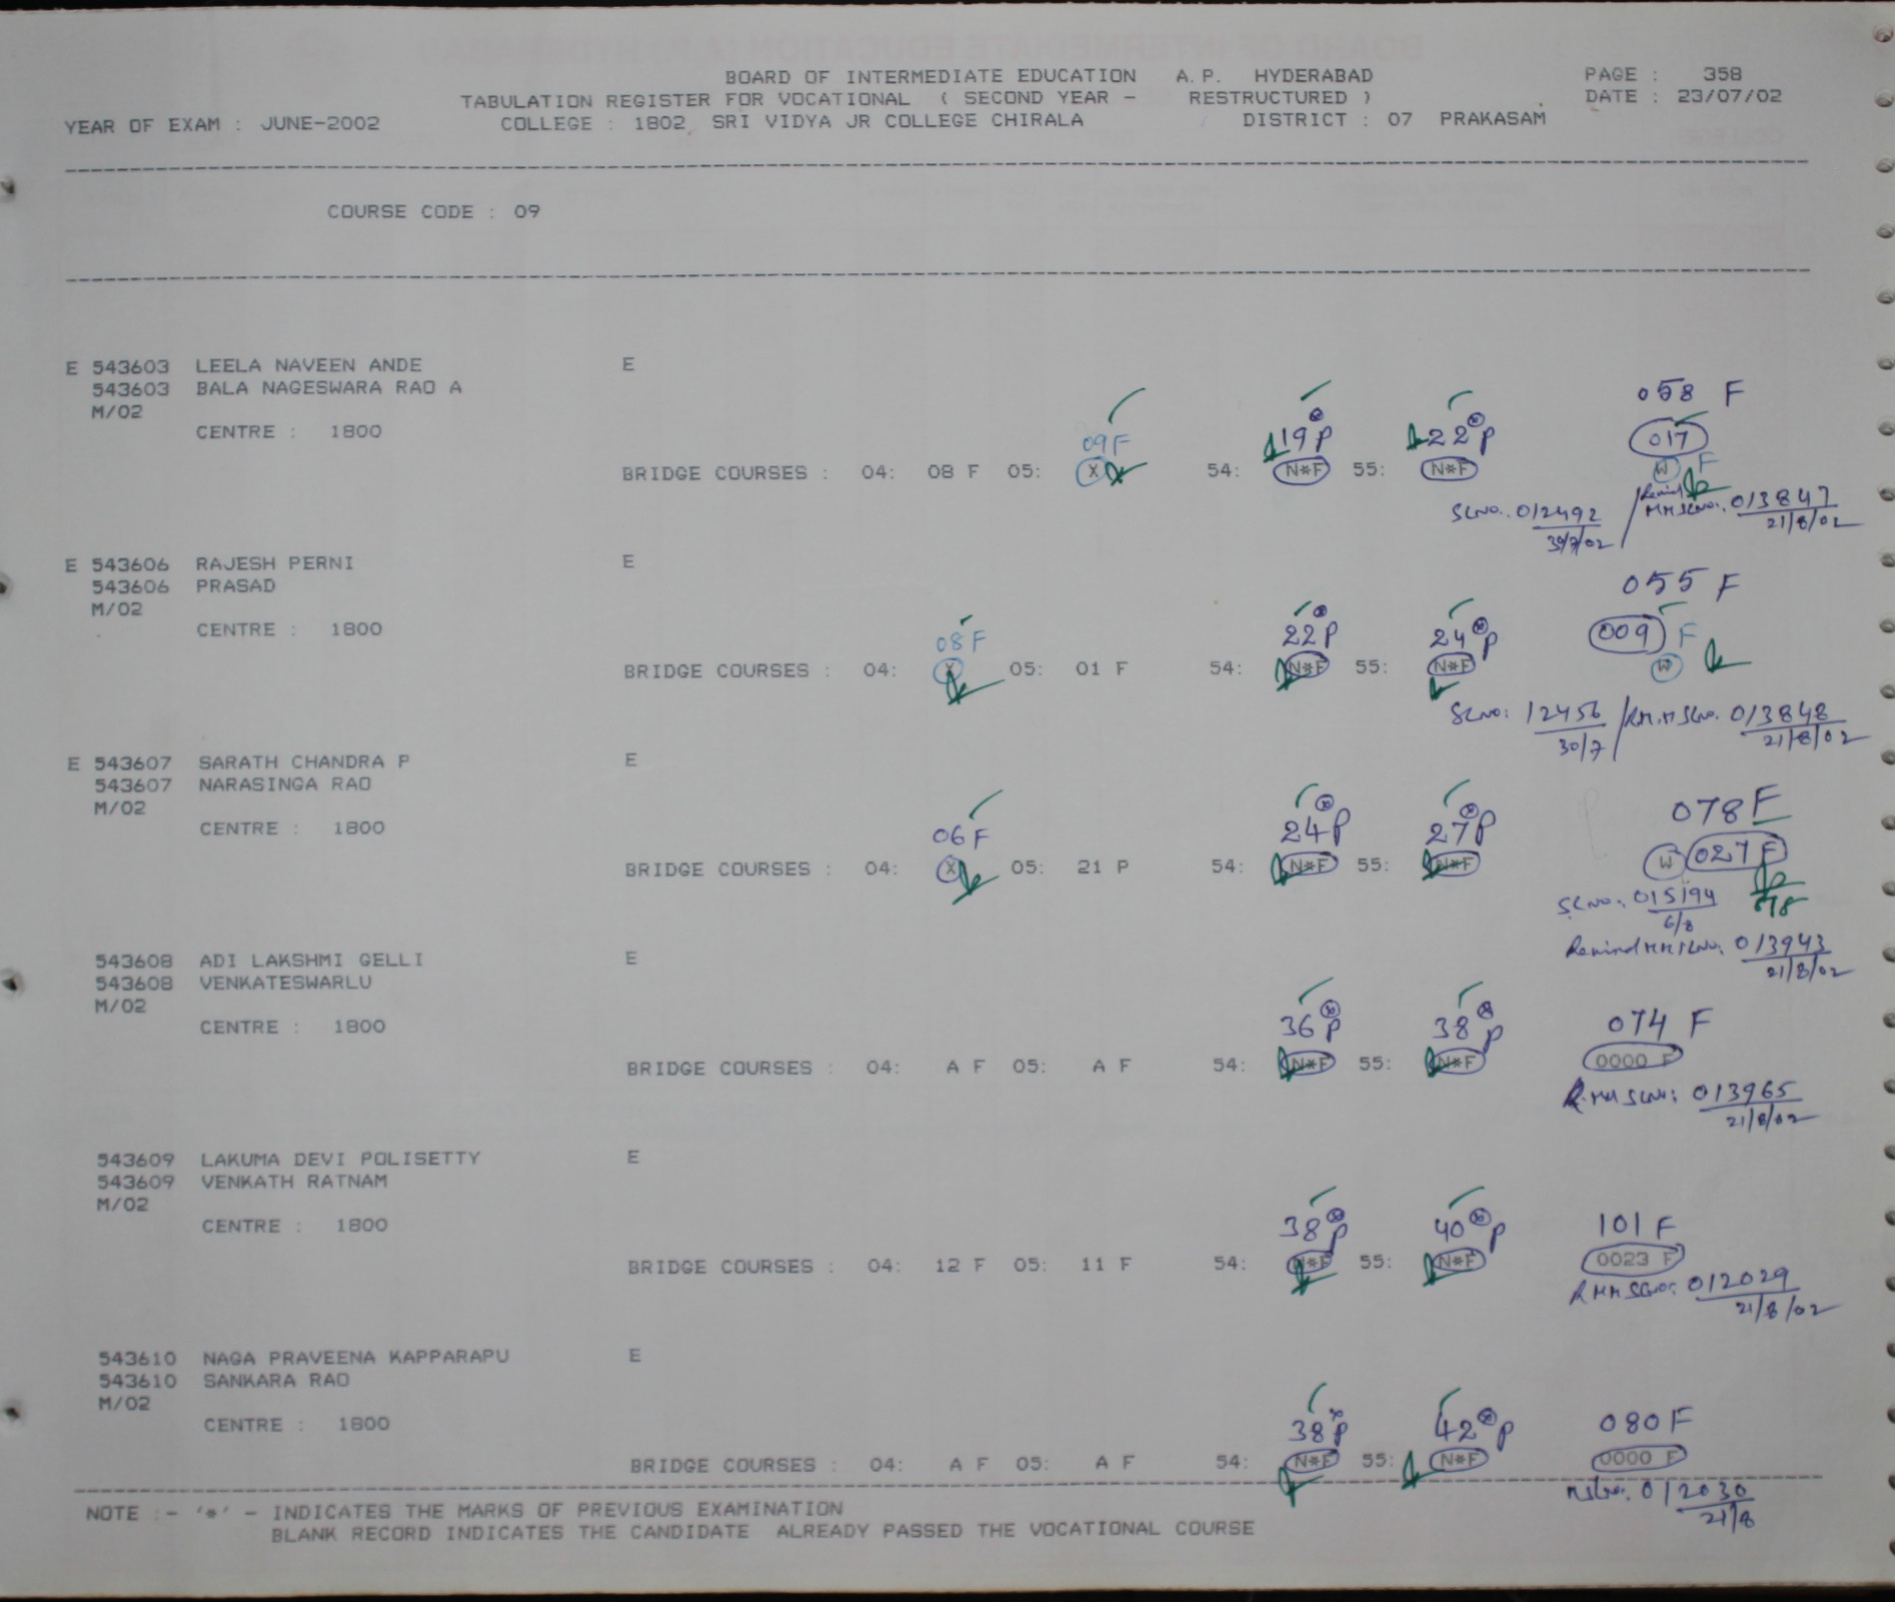 BOARD OF INTERMEDIATE EDUCATION A.P. HYDERABAD PAGE : 358
TABULATION REGISTER FOR VOCATIONAL ( SECOND YEAR - RESTRUCTURED ) DATE : 23/07/02
YEAR OF EXAM : JUNE-2002 COLLEGE : 1802 SRI VIDYA JR COLLEGE CHIRALA DISTRICT : 07 PRAKASAM
COURSE CODE : 09
E 543603 LEELA NAVEEN ANDE E
543603 BALA NAGESWARA RAO A 058 F
M/02
CENTRE : 1800
09F 19P 22P 017
BRIDGE COURSES : 04: 08 F 05: X 54: N*F 55: N*F W F
SLNo. 012492 / 013847
30/7/02 21/8/02
E 543606 RAJESH PERNI E
543606 PRASAD 055 F
M/02
CENTRE : 1800
08F 22P 24P 009 F
BRIDGE COURSES : 04: X 05: 01 F 54: N*F 55: N*F W
SLNo: 12456 / R.M.M SLNo. 013848
30/7 21/8/02
E 543607 SARATH CHANDRA P E
543607 NARASINGA RAO
M/02 078F
CENTRE : 1800
06F 24P 27P
BRIDGE COURSES : 04: X 05: 21 P 54: N*F 55: N*F W 027 F
SLNo. 015194
6/8
Remind MM SLNo. 013943
21/8/02
543608 ADI LAKSHMI GELLI E
543608 VENKATESWARLU
M/02
CENTRE : 1800 36P 38P 074 F
BRIDGE COURSES : 04: A F 05: A F 54: N*F 55: N*F 0000 F
R.MM SLNo: 013965
21/8/02
543609 LAKUMA DEVI POLISETTY E
543609 VENKATH RATNAM
M/02
CENTRE : 1800 38P 40P 101 F
BRIDGE COURSES : 04: 12 F 05: 11 F 54: N*F 55: N*F 0023 F
R MM SLNo: 012029
21/8/02
543610 NAGA PRAVEENA KAPPARAPU E
543610 SANKARA RAO
M/02
CENTRE : 1800 38P 42P 080F
BRIDGE COURSES : 04: A F 05: A F 54: N*F 55: N*F 0000 F
012030
21/8
NOTE :- '*' - INDICATES THE MARKS OF PREVIOUS EXAMINATION
BLANK RECORD INDICATES THE CANDIDATE ALREADY PASSED THE VOCATIONAL COURSE